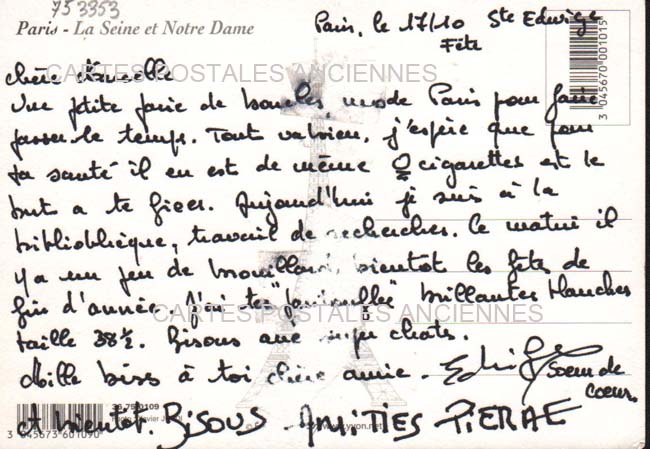 753353
Paris - La Seine et Notre Dame
Paris, le 17/10 Ste Edwige
Fête
chère
CARTES POSTALES ANCIENNES
Une petite paire de boucles, mode Paris pour faire
passer le temps. Tout va bien, j'espère que pour
ta santé il en est de même 0 cigarettes est le
but a te fixer. Aujourd'hui je suis à la
bibliothèque, travail de recherches. Ce matin il
y a un peu de brouillard, bientot les fêtes de
fin d'année. J'ai tes " " brillantes blanches
CARTES POSTALES ANCIENNES
taille 38½. Bisous aux chats.
Mille bises à toi chère amie. Edwige
Soeur de
coeur.
et bientot. BISOUS - AMITIES PIERRE
3 045670 001015
3 045673 601090